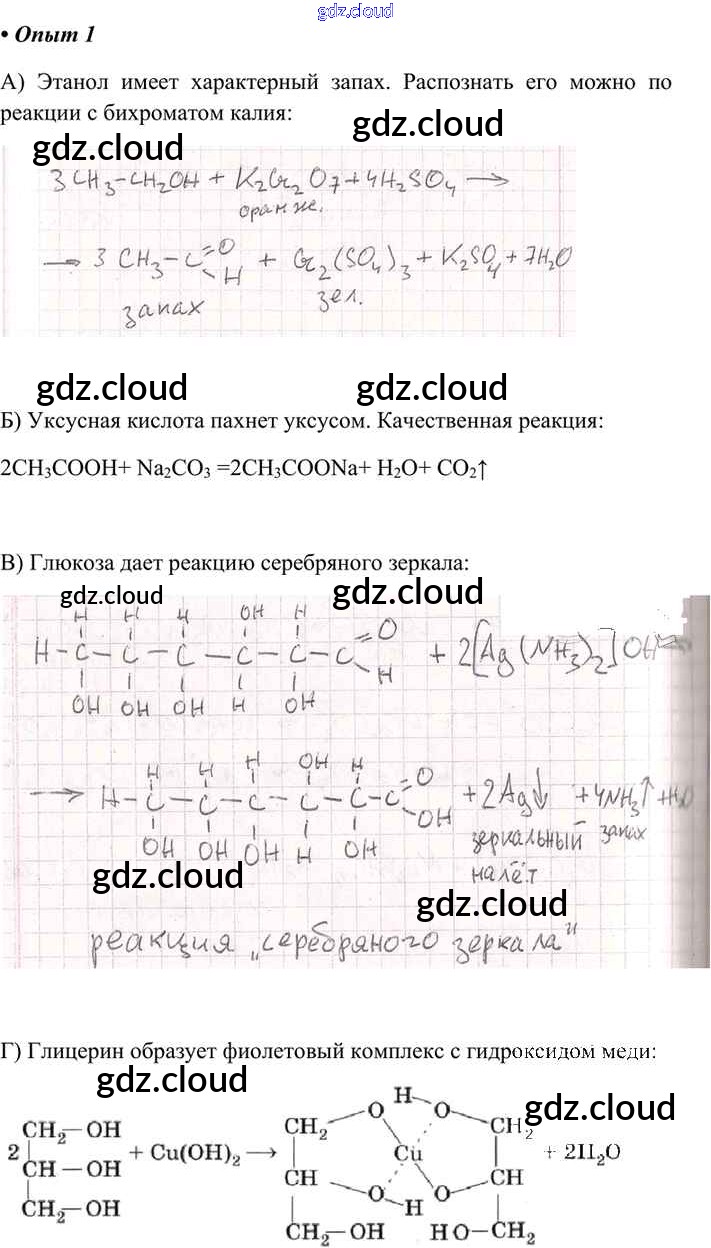 gdz.cloud
• Опыт 1
А) Этанол имеет характерный запах. Распознать его можно по
реакции с бихроматом калия:
gdz.cloud
gdz.cloud
3CH₃-CH₂OH + K₂Cr₂O₇+4H₂SO₄ →
оранж.
→ 3 CH₃-C=O H + Cr₂(SO₄)₃ + K₂SO₄ + 7H₂O
запах зел.
gdz.cloud gdz.cloud
Б) Уксусная кислота пахнет уксусом. Качественная реакция:
2CH₃COOH+ Na₂CO₃ =2CH₃COONa+ H₂O+ CO₂↑
В) Глюкоза дает реакцию серебряного зеркала:
gdz.cloud gdz.cloud
H H H OH H
H-C-C-C-C-C-C=O H + 2[Ag(NH₃)₂]OH
OH OH OH H OH
→ H H H OH H
H-C-C-C-C-C-C=O OH +2Ag↓ +4NH₃↑ +H₂O
OH OH OH H OH зеркальный запах
налёт
gdz.cloud
gdz.cloud
реакция „серебряного зеркала"
Г) Глицерин образует фиолетовый комплекс с гидроксидом меди:
gdz.cloud
gdz.cloud
CH₂—OH
2 CH—OH + Cu(OH)₂ →
CH₂—OH
CH₂ O H O CH₂
Cu + 2H₂O
CH O H O CH
CH₂—OH HO—CH₂